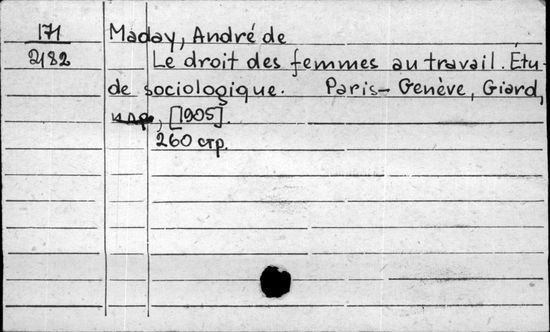 171
2/82
Maday, André de
Le droit des femmes au travail. Étu-
de sociologique. Paris - Genève, Giard,
и др., [1905].
260 стр.